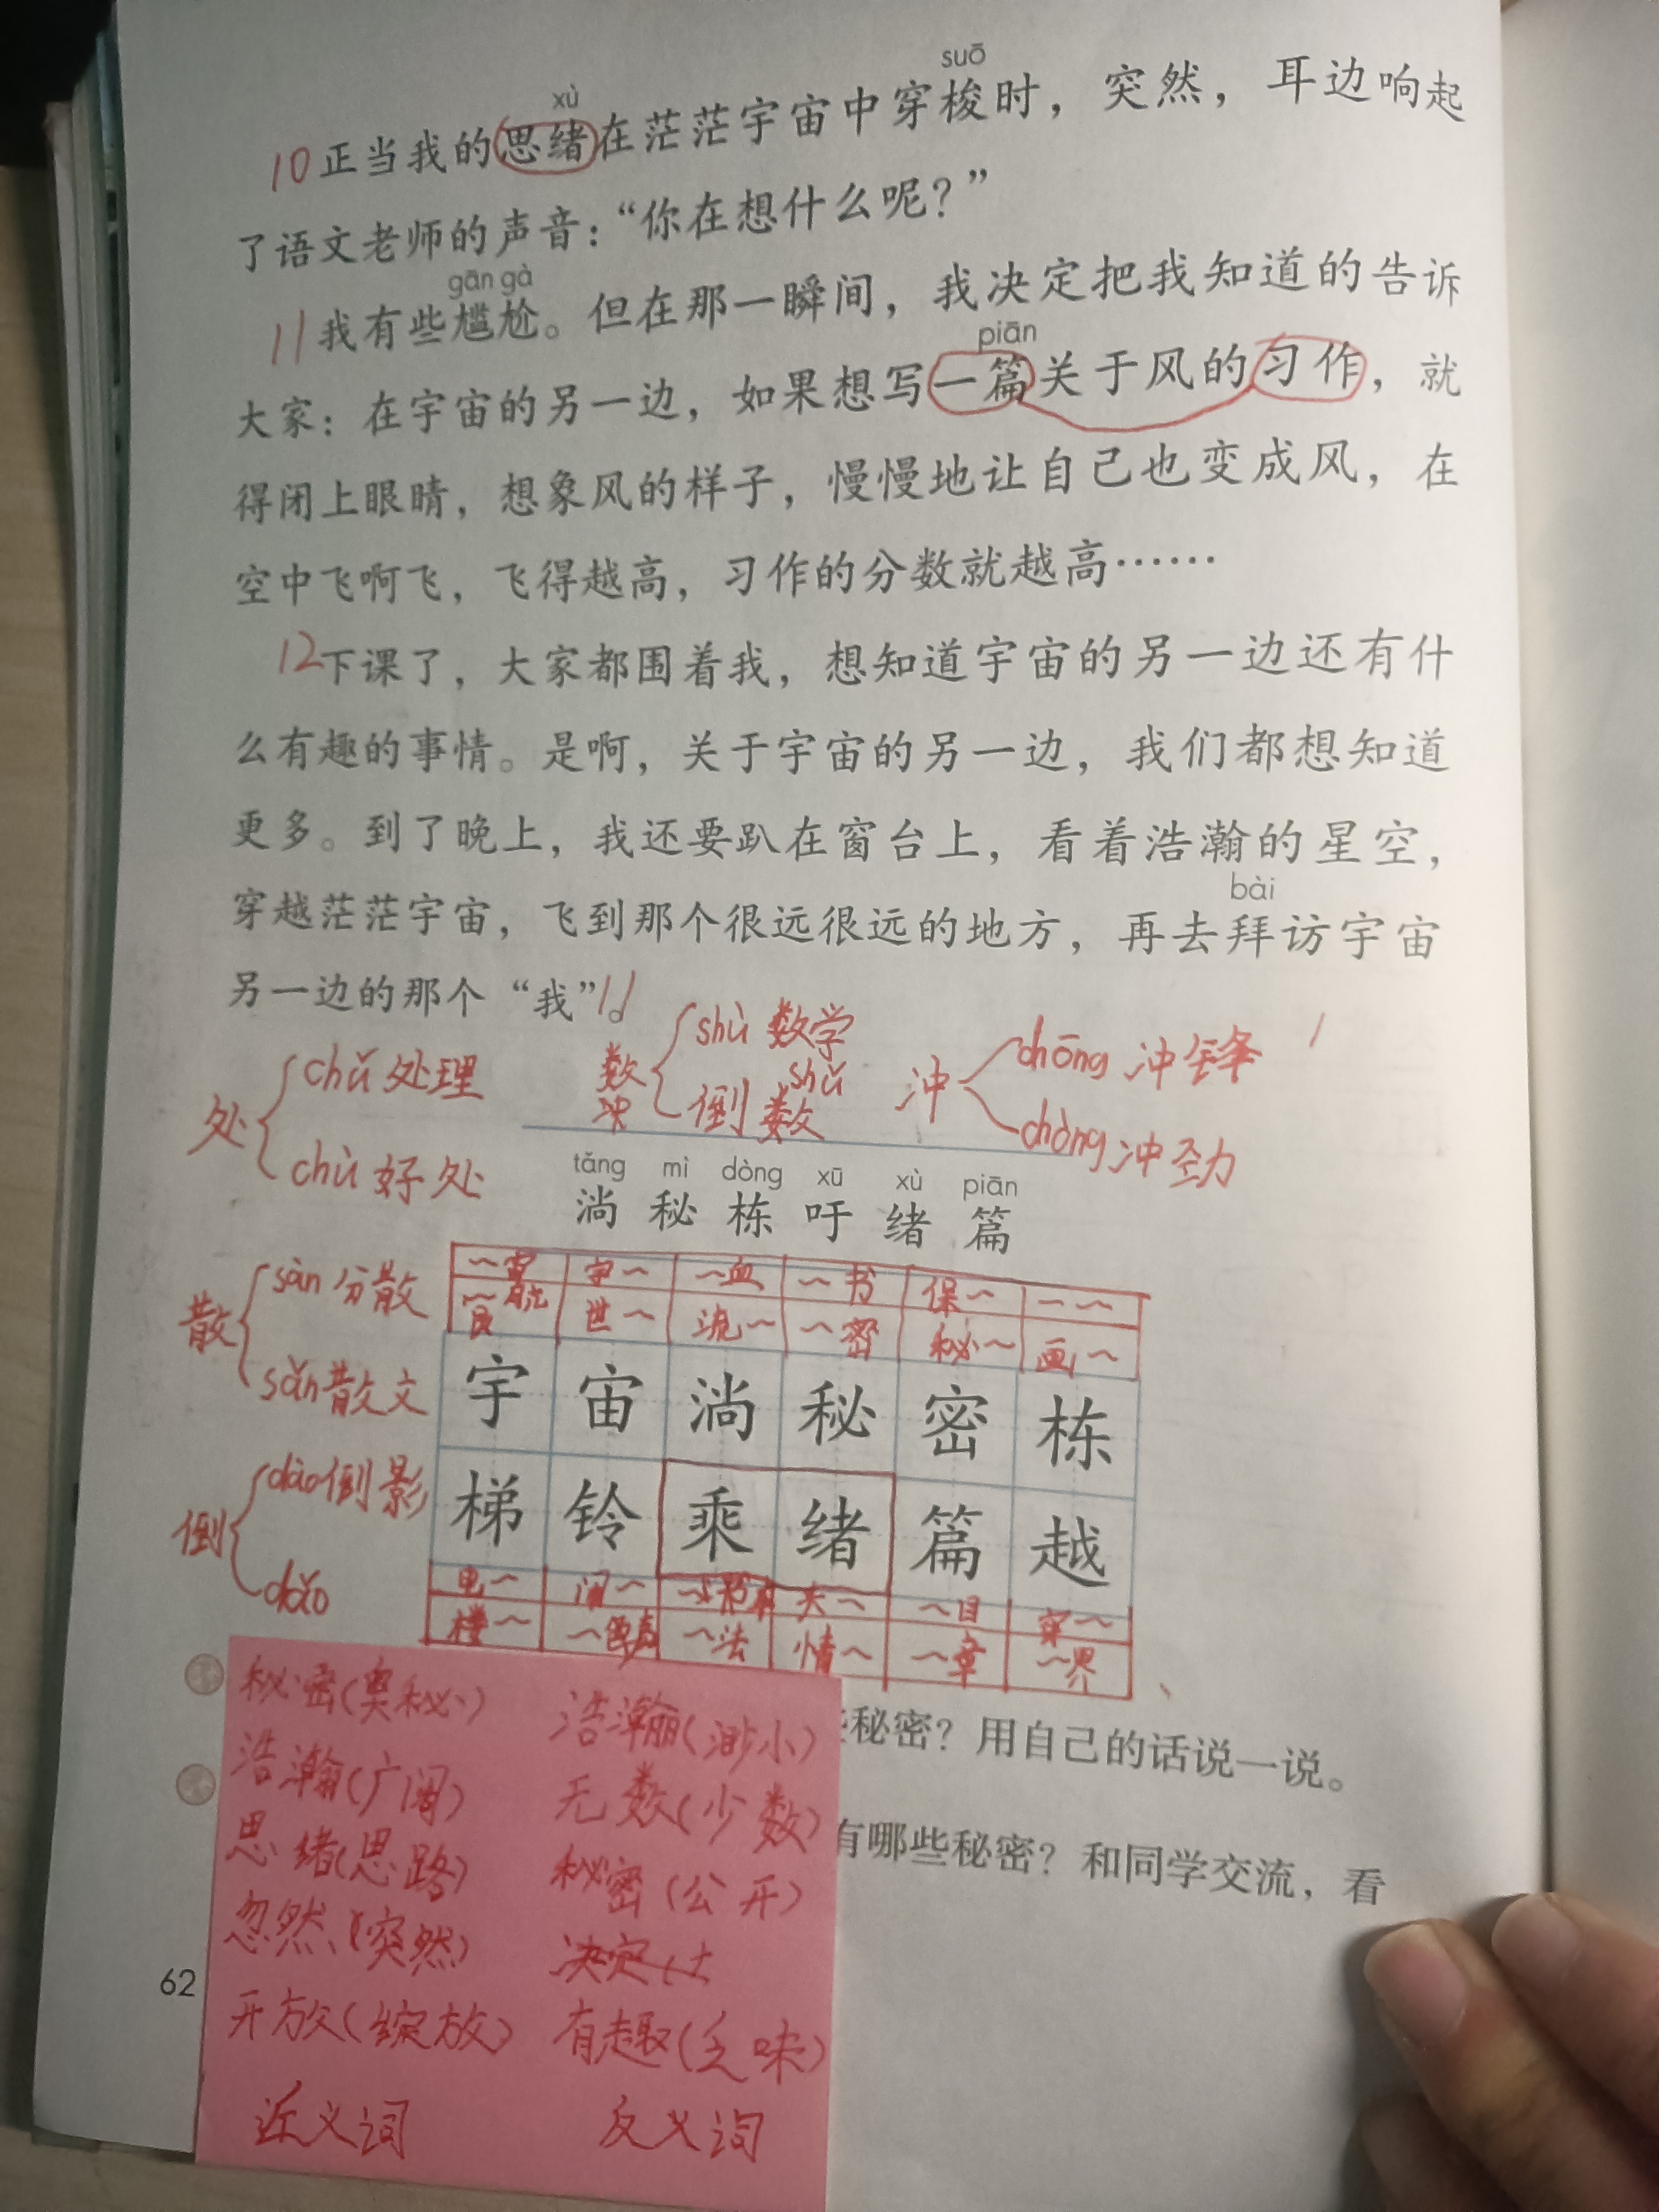 suō
xù
10 正当我的思绪在茫茫宇宙中穿梭时，突然，耳边响起
了语文老师的声音：“你在想什么呢？”
gān gà
11 我有些尴尬。但在那一瞬间，我决定把我知道的告诉
piān
大家：在宇宙的另一边，如果想写一篇关于风的习作，就
得闭上眼睛，想象风的样子，慢慢地让自己也变成风，在
空中飞啊飞，飞得越高，习作的分数就越高……
12 下课了，大家都围着我，想知道宇宙的另一边还有什
么有趣的事情。是啊，关于宇宙的另一边，我们都想知道
更多。到了晚上，我还要趴在窗台上，看着浩瀚的星空，
bài
穿越茫茫宇宙，飞到那个很远很远的地方，再去拜访宇宙
另一边的那个“我”。
处 chǔ 处理
chù 好处
数 shù 数学
倒数 shǔ
冲
冲 chōng 冲锋
chòng 冲劲
tǎng mì dòng xū xù piān
淌 秘 栋 吁 绪 篇
散 sàn 分散
sǎn 散文
倒 dào 倒影
dǎo
～宙 宇～ ～血 ～书 保～ 一～
世～ 流～ ～密 秘～ 画～
宇 宙 淌 秘 密 栋
梯 铃 乘 绪 篇 越
电～ 闹～ 头～ ～目 穿～
楼～ ～声 ～法 情～ ～章 ～界
秘密？用自己的话说一说。
有哪些秘密？和同学交流，看
秘密（奥秘） 浩瀚（渺小）
浩瀚（广阔） 无数（少数）
思绪（思路） 秘密（公开）
忽然（突然） 决定（
开放（绽放） 有趣（乏味）
近义词 反义词
62